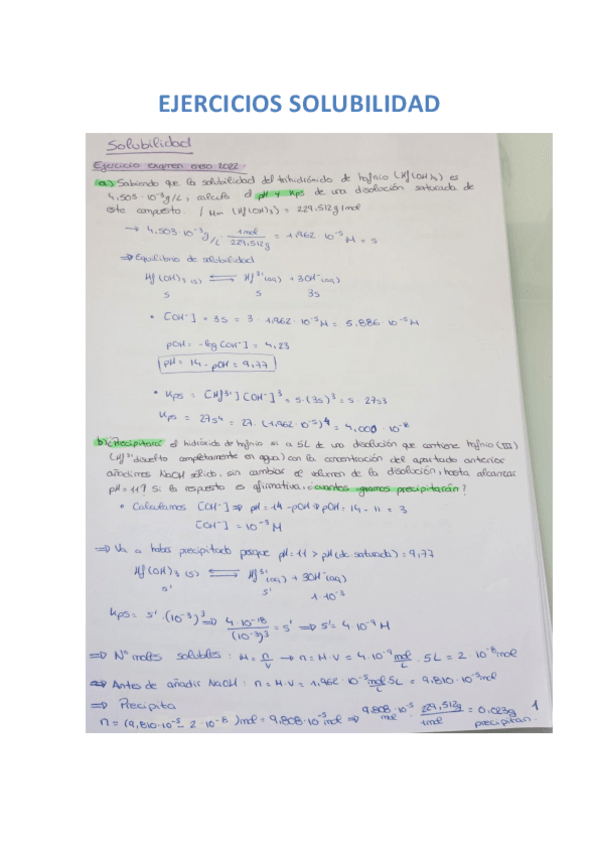 EJERCICIOS SOLUBILIDAD
Solubilidad
Ejercicio examen enero 2022:
a) Sabiendo que la solubilidad del trihidróxido de hafnio (Hf(OH)₃) es
4,503·10⁻³g/L, calcula el pH y Kps de una disolución saturada de
este compuesto. / Mm (Hf(OH)₃) = 229,512g/mol
→ 4,503·10⁻³ g/L · 1mol/229,512g = 1,962·10⁻⁵ M = s
⇒ Equilibrio de solubilidad
Hf(OH)₃ (s) ⇌ Hf³⁺(aq) + 3OH⁻(aq)
s s 3s
• [OH⁻] = 3s = 3·1,962·10⁻⁵M = 5,886·10⁻⁵M
pOH = -log[OH⁻] = 4,23
pH = 14 - pOH = 9,77
• Kps = [Hf³⁺][OH⁻]³ = s·(3s)³ = s·27s3
Kps = 27s⁴ = 27·(1,962·10⁻⁵)⁴ = 4,000·10⁻¹⁸
b) ¿Precipitará el hidróxido de hafnio si a 5L de una disolución que contiene hafnio (III)
(Hf³⁺ disuelto completamente en agua) con la concentración del apartado anterior
añadimos NaOH sólido, sin cambiar el volumen de la disolución, hasta alcanzar
pH = 11? Si la respuesta es afirmativa, ¿cuántos gramos precipitarán?
• Calculamos [OH⁻] ⇒ pH = 14 - pOH ⇒ pOH = 14 - 11 = 3
[OH⁻] = 10⁻³ M
⇒ Va a haber precipitado porque pH = 11 > pH (de saturada) = 9,77
Hf(OH)₃ (s) ⇌ Hf³⁺(aq) + 3OH⁻(aq)
s' s' 1·10⁻³
Kps = s'·(10⁻³)³ ⇒ 4·10⁻¹⁸/(10⁻³)³ = s' ⇒ s' = 4·10⁻⁹ M
⇒ Nº moles solubles: M = n/V → n = M·V = 4·10⁻⁹ mol/L · 5L = 2·10⁻⁸ mol
⇒ Antes de añadir NaOH: n = M·V = 1,962·10⁻⁵ mol/L 5L = 9,810·10⁻⁵ mol
⇒ Precipita
n = (9,810·10⁻⁵ - 2·10⁻⁸) mol = 9,808·10⁻⁵ mol ⇒ 9,808·10⁻⁵ mol · 229,512g/1mol = 0,023g precipitan.
1